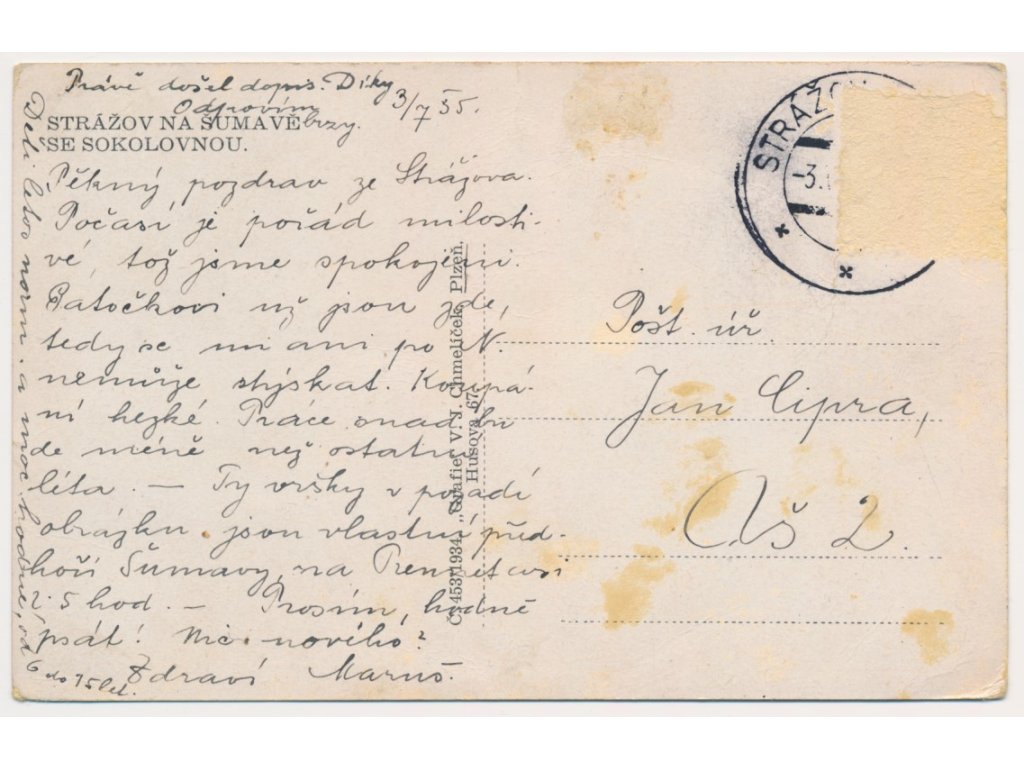 Právě došel dopis. Díky
Odpovím
brzy.
3/7 35.
STRÁŽOV NA ŠUMAVĚ
SE SOKOLOVNOU.
Pěkný pozdrav ze Strážova.
Počasí je pořád milosti-
vé, tož jsme spokojeni.
Patočkovi už jsou zde,
tedy se mi ani po N.
nemůže stýskat. Koupá-
ní hezké. Práce snad bu
de méně než ostatní
léta. — Ty vršky v pozadí
obrázku jsou vlastní před-
hoří Šumavy, na asi
2.5 hod. — Prosím, hodně
psát! Nic nového?
Zdraví
Dětí letos norm. a moc hodné, od
6 do 15 let.
Č. 453/1934. „Grafie“, V. J. Chmelíček, Plzeň.
Husova 67.
STRÁŽOV
-3.
Pošt. úř.
Jan Cipra,
Aš 2.